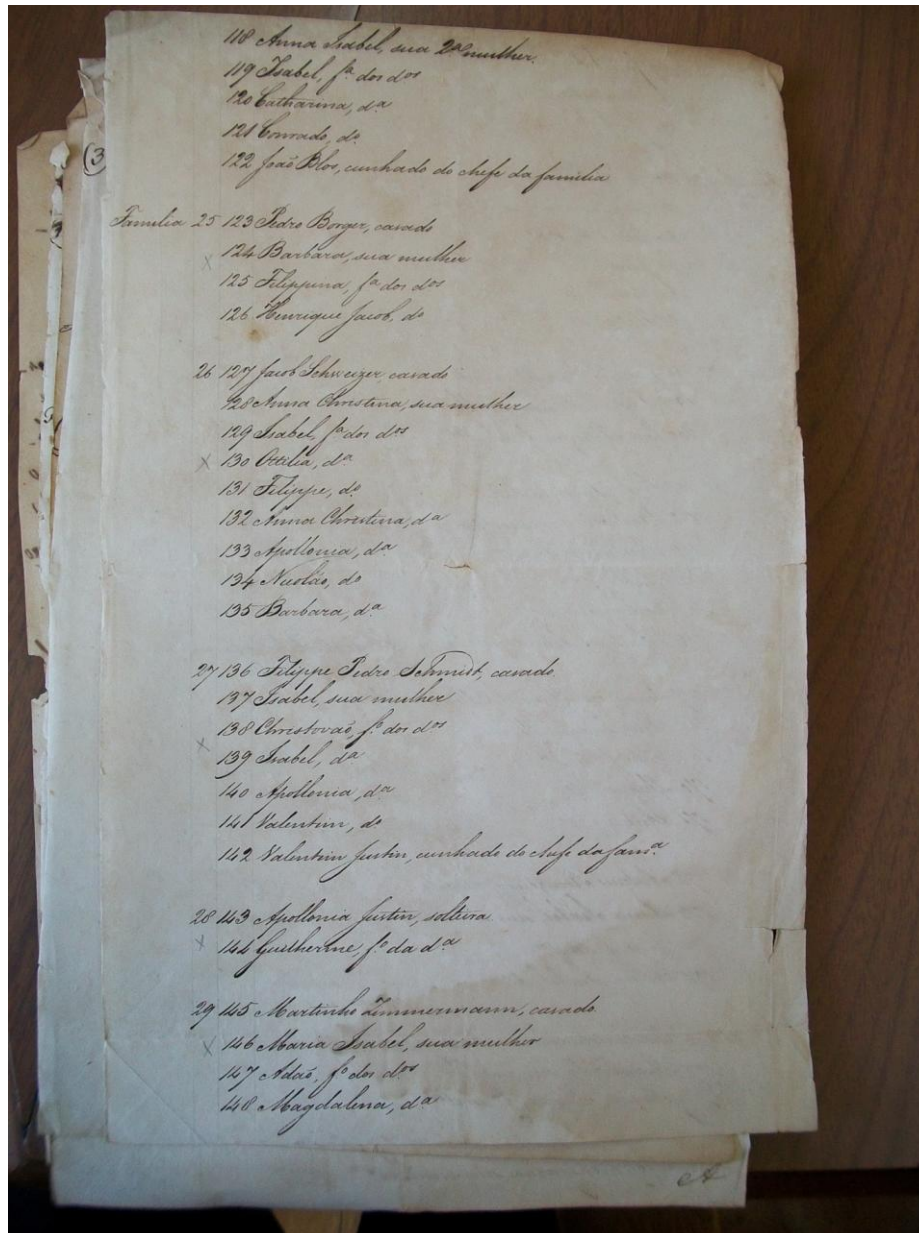 118 Anna Isabel, sua 2ª mulher.
119 Isabel, fª dos dos
120 Catharina, dª
121 Conrado, do
122 João Blos, cunhado do chefe da familia
(3
Familia 25 123 Pedro Borger, casado
124 Barbara, sua mulher
125 Filippina, fª dos dos
126 Henrique Jacob, do
26 127 Jacob Schweizer, casado
128 Anna Christina, sua mulher
129 Isabel, fª dos dos
130 Ottilia, dª
131 Filippe, do
132 Anna Christina, dª
133 Apollonia, dª
134 Nicoláo, do
135 Barbara, dª
27 136 Filippe Pedro Schmidt, casado
137 Isabel, sua mulher
138 Christovaõ, fo dos dos
139 Isabel, dª
140 Apollonia, dª
141 Valentim, do
142 Valentim Justin, cunhado do chefe da famª.
28 143 Apollonia Justin, solteira
144 Guilherme, fo da dª
29 145 Martinho Zimmermann, casado
146 Maria Isabel, sua mulher
147 Adaõ, fo dos dos
148 Magdalena, dª